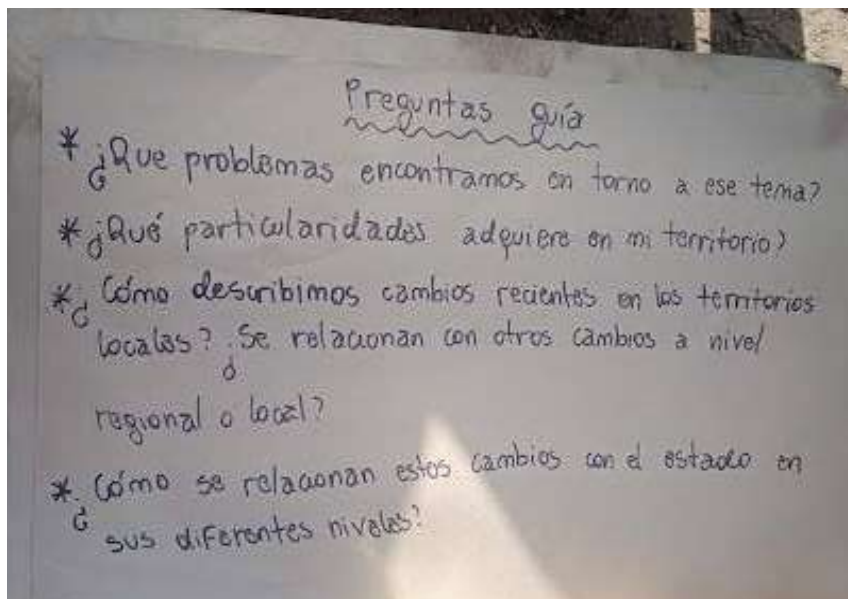 Preguntas guía
* ¿Que problemas encontramos en torno a ese tema?
* ¿Qué particularidades adquiere en mi territorio?
* ¿Cómo describimos cambios recientes en los territorios
locales? ¿Se relacionan con otros cambios a nivel
regional o local?
* ¿Cómo se relacionan estos cambios con el estado en
sus diferentes niveles?